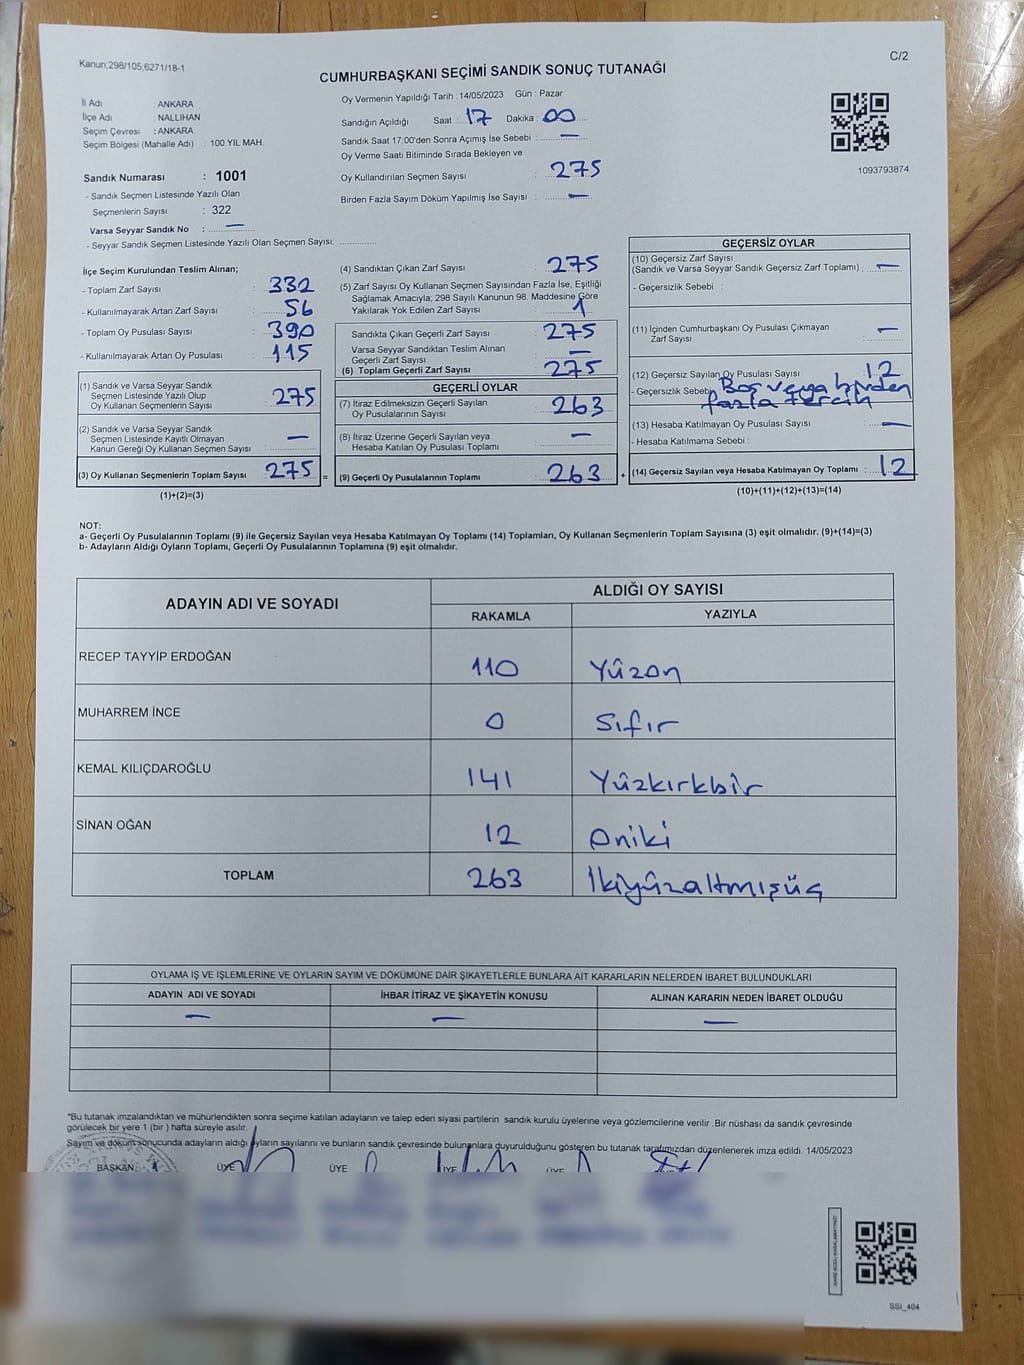 Kanun;298/105,6271/18-1
C/2
CUMHURBAŞKANI SEÇİMİ SANDIK SONUÇ TUTANAĞI
İl Adı : ANKARA
İlçe Adı : NALLIHAN
Seçim Çevresi : ANKARA
Seçim Bölgesi (Mahalle Adı) : 100.YIL MAH.
Sandık Numarası : 1001
- Sandık Seçmen Listesinde Yazılı Olan
Seçmenlerin Sayısı : 322
Varsa Seyyar Sandık No : —
- Seyyar Sandık Seçmen Listesinde Yazılı Olan Seçmen Sayısı: ..............
Oy Vermenin Yapıldığı Tarih : 14/05/2023 Gün : Pazar
Sandığın Açıldığı Saat : 17 Dakika : 00
Sandık Saat 17:00'den Sonra Açımış İse Sebebi : —
Oy Verme Saati Bitiminde Sırada Bekleyen ve
Oy Kullandırılan Seçmen Sayısı : 275
Birden Fazla Sayım Döküm Yapılmış İse Sayısı : —
1093793874
İlçe Seçim Kurulundan Teslim Alınan;
- Toplam Zarf Sayısı : 332
- Kullanılmayarak Artan Zarf Sayısı : 56
- Toplam Oy Pusulası Sayısı : 390
- Kullanılmayarak Artan Oy Pusulası : 115
(1) Sandık ve Varsa Seyyar Sandık
Seçmen Listesinde Yazılı Olup
Oy Kullanan Seçmenlerin Sayısı : 275
(2) Sandık ve Varsa Seyyar Sandık
Seçmen Listesinde Kayıtlı Olmayan
Kanun Gereği Oy Kullanan Seçmen Sayısı : —
(3) Oy Kullanan Seçmenlerin Toplam Sayısı : 275 =
(1)+(2)=(3)
(4) Sandıktan Çıkan Zarf Sayısı : 275
(5) Zarf Sayısı Oy Kullanan Seçmen Sayısından Fazla İse, Eşitliği
Sağlamak Amacıyla; 298 Sayılı Kanunun 98. Maddesine Göre
Yakılarak Yok Edilen Zarf Sayısı : 1
Sandıkta Çıkan Geçerli Zarf Sayısı : 275
Varsa Seyyar Sandıktan Teslim Alınan
Geçerli Zarf Sayısı : —
(6) Toplam Geçerli Zarf Sayısı : 275
GEÇERLİ OYLAR
(7) İtiraz Edilmeksizin Geçerli Sayılan
Oy Pusulalarının Sayısı : 263
(8) İtiraz Üzerine Geçerli Sayılan veya
Hesaba Katılan Oy Pusulası Toplamı : —
(9) Geçerli Oy Pusulalarının Toplamı : 263 +
GEÇERSİZ OYLAR
(10) Geçersiz Zarf Sayısı
(Sandık ve Varsa Seyyar Sandık Geçersiz Zarf Toplamı) : —
- Geçersizlik Sebebi :
(11) İçinden Cumhurbaşkanı Oy Pusulası Çıkmayan
Zarf Sayısı : —
(12) Geçersiz Sayılan Oy Pusulası Sayısı : 12
- Geçersizlik Sebebi Boş veya birden
fazla tercih
(13) Hesaba Katılmayan Oy Pusulası Sayısı : —
- Hesaba Katılmama Sebebi :
(14) Geçersiz Sayılan veya Hesaba Katılmayan Oy Toplamı : 12
(10)+(11)+(12)+(13)=(14)
NOT:
a- Geçerli Oy Pusulalarının Toplamı (9) ile Geçersiz Sayılan veya Hesaba Katılmayan Oy Toplamı (14) Toplamları, Oy Kullanan Seçmenlerin Toplam Sayısına (3) eşit olmalıdır. (9)+(14)=(3)
b- Adayların Aldığı Oyların Toplamı, Geçerli Oy Pusulalarının Toplamına (9) eşit olmalıdır.
ADAYIN ADI VE SOYADI
ALDIĞI OY SAYISI
RAKAMLA YAZIYLA
RECEP TAYYİP ERDOĞAN 110 Yüzon
MUHARREM İNCE 0 Sıfır
KEMAL KILIÇDAROĞLU 141 Yüzkırkbir
SİNAN OĞAN 12 Oniki
TOPLAM 263 İkiyüzaltmışüç
OYLAMA İŞ VE İŞLEMLERİNE VE OYLARIN SAYIM VE DÖKÜMÜNE DAİR ŞİKAYETLERLE BUNLARA AİT KARARLARIN NELERDEN İBARET BULUNDUKLARI
ADAYIN ADI VE SOYADI İHBAR İTİRAZ VE ŞİKAYETİN KONUSU ALINAN KARARIN NEDEN İBARET OLDUĞU
— — —
*Bu tutanak imzalandıktan ve mühürlendikten sonra seçime katılan adayların ve talep eden siyasi partilerin sandık kurulu üyelerine veya gözlemcilerine verilir .Bir nüshası da sandık çevresinde
görülecek bir yere 1 (bir ) hafta süreyle asılır.
Sayım ve döküm sonucunda adayların aldığı oyların sayılarını ve bunların sandık çevresinde bulunanlara duyurulduğunu gösteren bu tutanak tarafımızdan düzenlenerek imza edildi. 14/05/2023
BAŞKAN ÜYE ÜYE ÜYE ÜYE
SSI_404